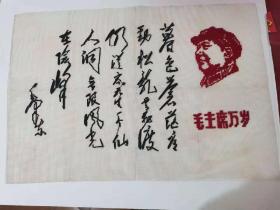 暮色苍茫看
劲松乱云飞渡
仍从容天生一个仙
人洞无限风光
在险峰
毛泽东
毛主席万岁